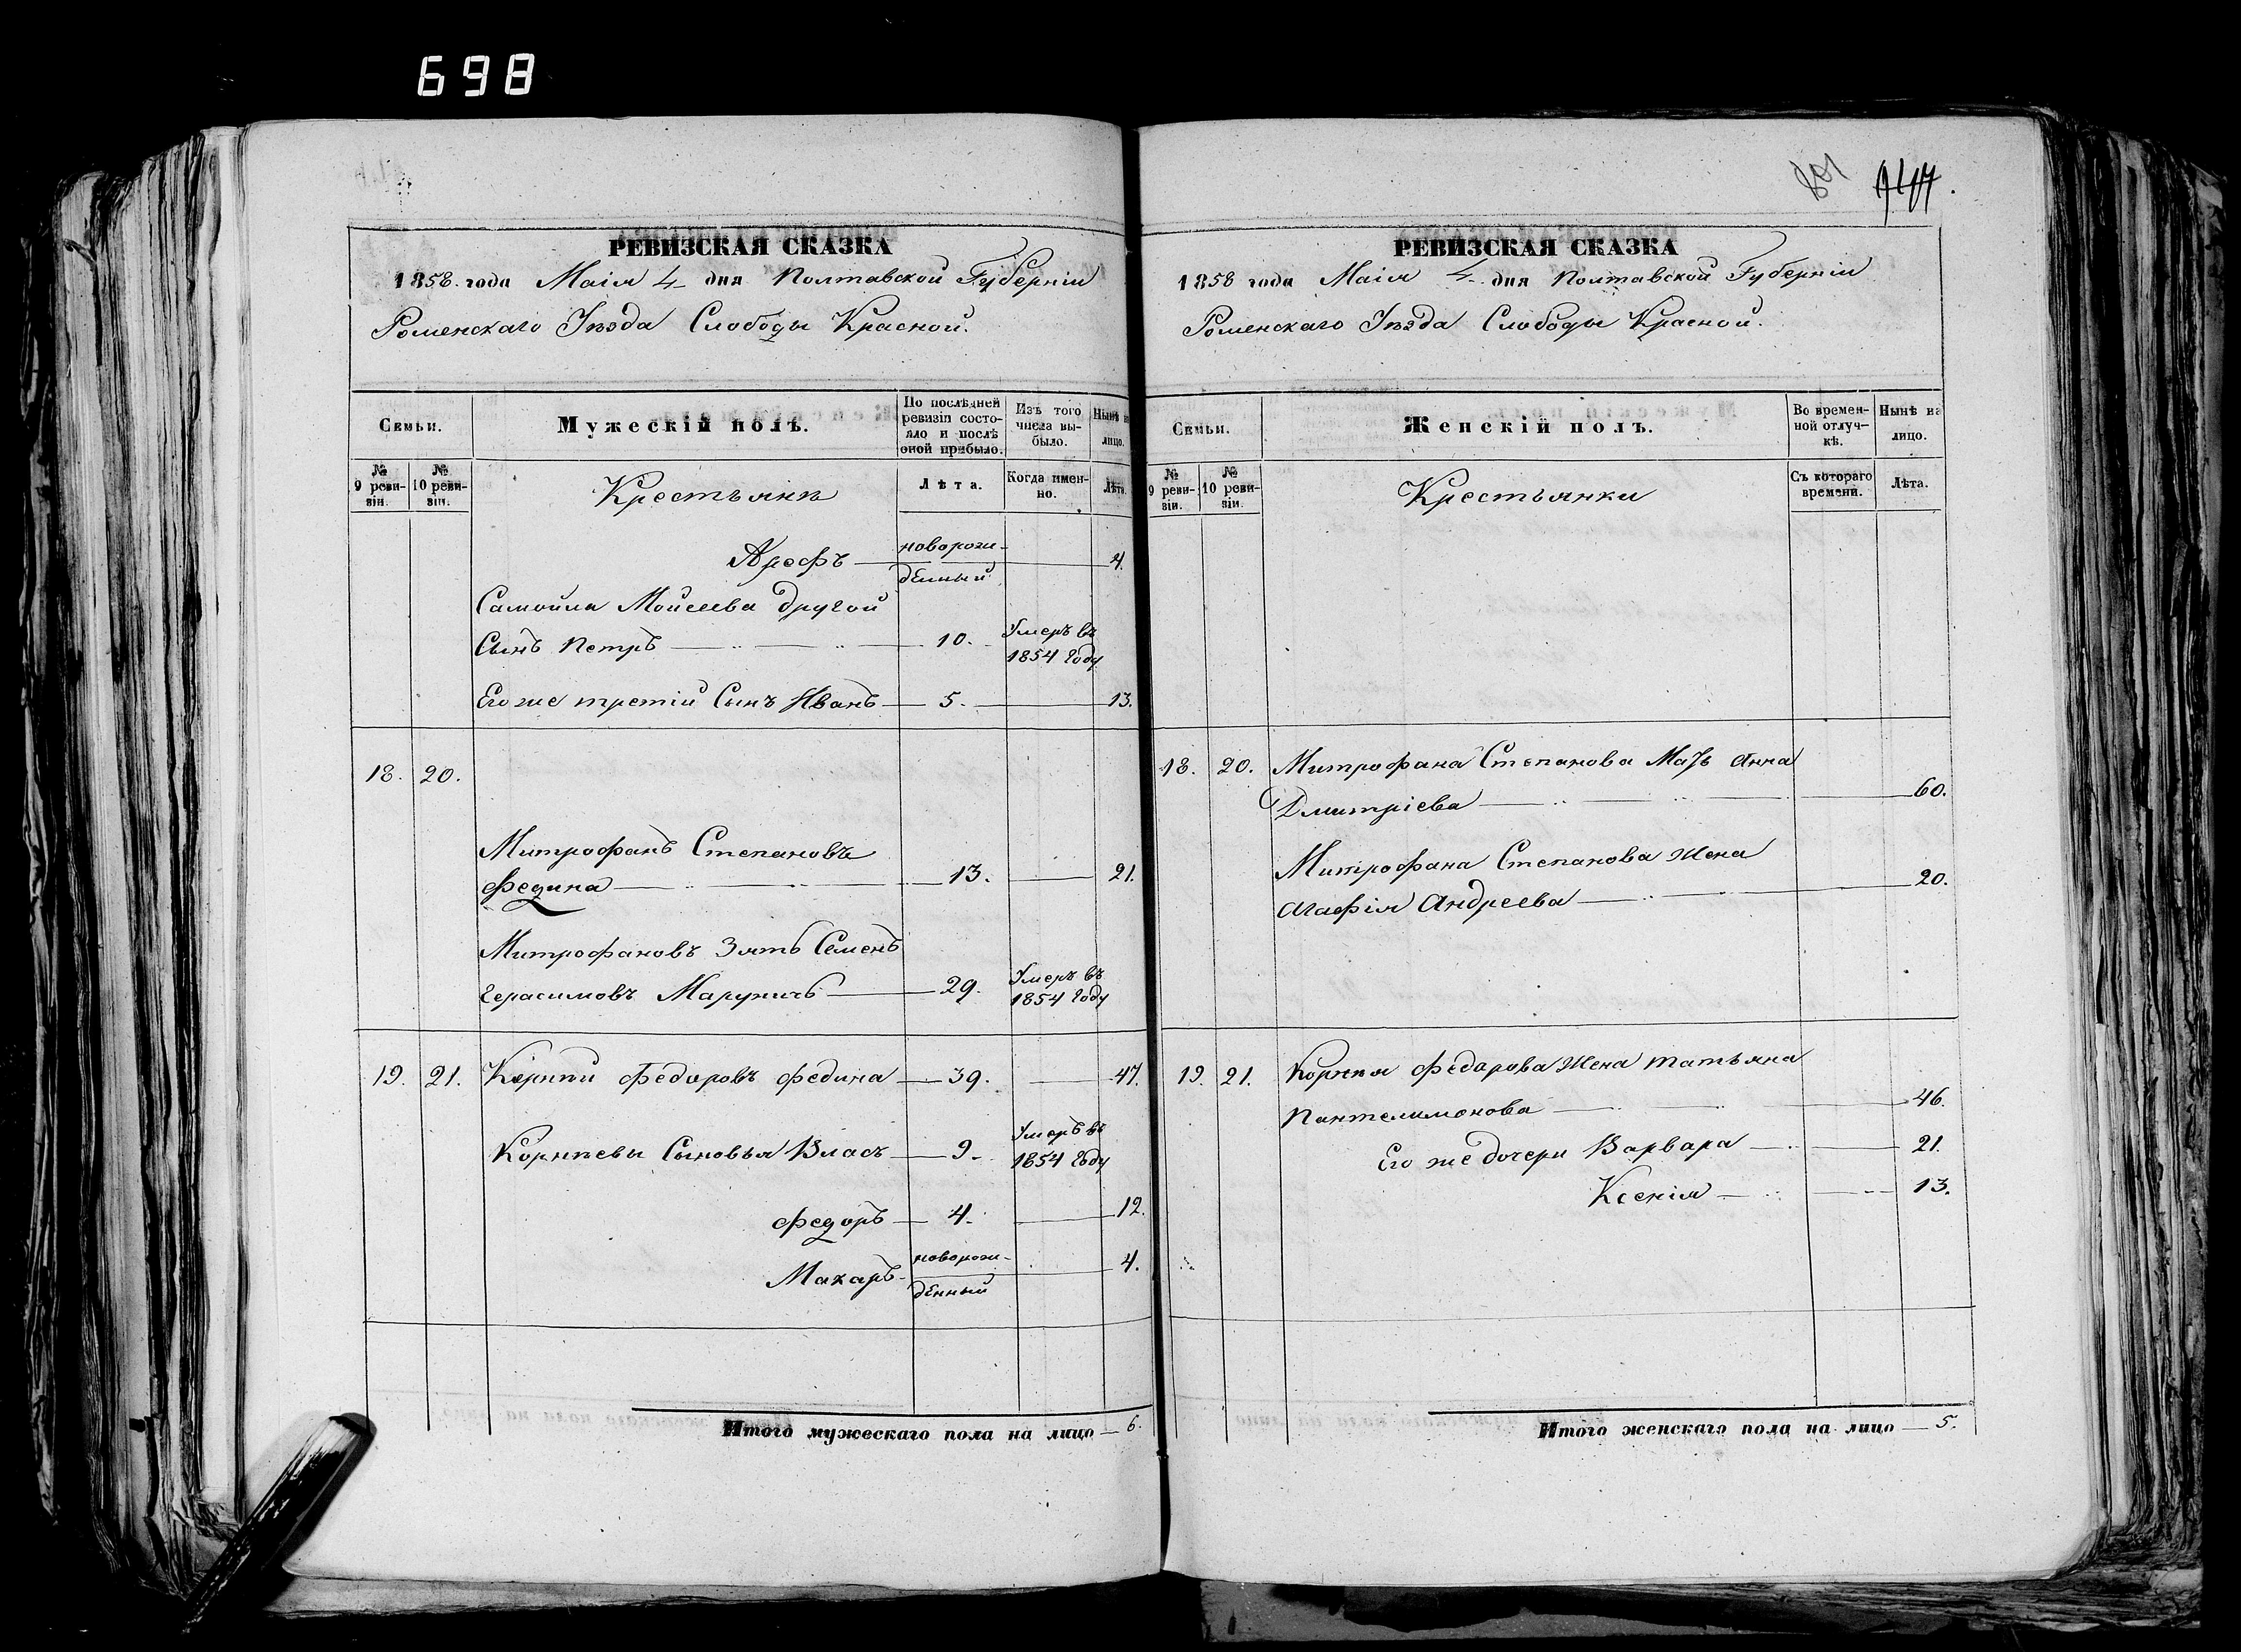 698
РЕВИЗСКАЯ СКАЗКА
1858. года Маія 4 дня Полтавской Губерніи
Роменскаго Уѣзда Слободы Красной.
Семьи.
Мужескій полъ.
По послѣдней ревизіи состояло и послѣ оной прибыло.
Изъ того числа выбыло.
Нынѣ на лицо.
№ 9 ревизіи.
№ 10 ревизіи.
Крестьяне
Лѣта.
Когда именно.
Лѣта.
Арефъ — новорожденный — 4.
Самойла Моисеева другой
Сынъ Петръ — 10. Умеръ въ 1854 Году
Его же третій Сынъ Иванъ — 5. — 13.
18. 20.
Митрофанъ Степановъ
Федина — 13. — 21.
Митрофановъ Зять Семенъ
Герасимовъ — 29. Умеръ въ 1854 Году
19. 21. Корнѣй Федоровъ Федина — 39. — 47.
Корнѣевы Сыновья Власъ — 9. Умеръ въ 1854 Году
Федоръ — 4. — 12.
Макаръ — новорожденный — 4.
Итого мужескаго пола на лицо — 6.
РЕВИЗСКАЯ СКАЗКА
1858 года Маія 4 дня Полтавской Губерніи
Роменскаго Уѣзда Слободы Красной.
Семьи.
Женскій полъ.
Во временной отлучкѣ.
Нынѣ на лицо.
№ 9 ревизіи.
№ 10 ревизіи.
Крестьянки
Съ котораго времени.
Лѣта.
18. 20. Митрофана Степанова Мать Анна
Дмитріева — 60.
Митрофана Степанова Жена
Агафія Андреева — 20.
19. 21. Корнѣя Федорова Жена Татьяна
Пантелимонова — 46.
Его же дочери Варвара — 21.
Ксенія — 13.
Итого женскаго пола на лицо — 5.